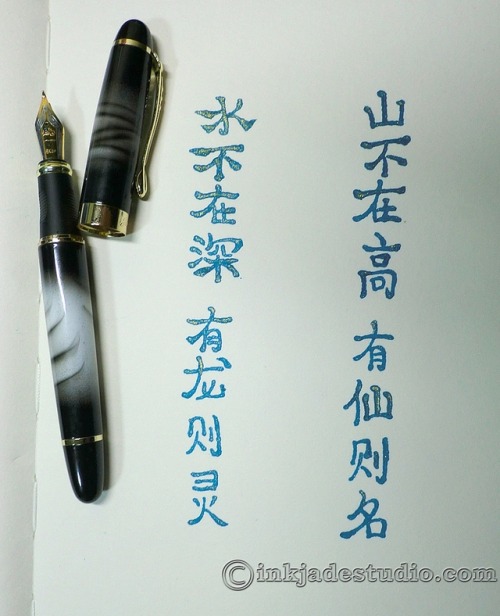 山不在高 有仙则名
水不在深 有龙则灵
©inkjadestudio.com